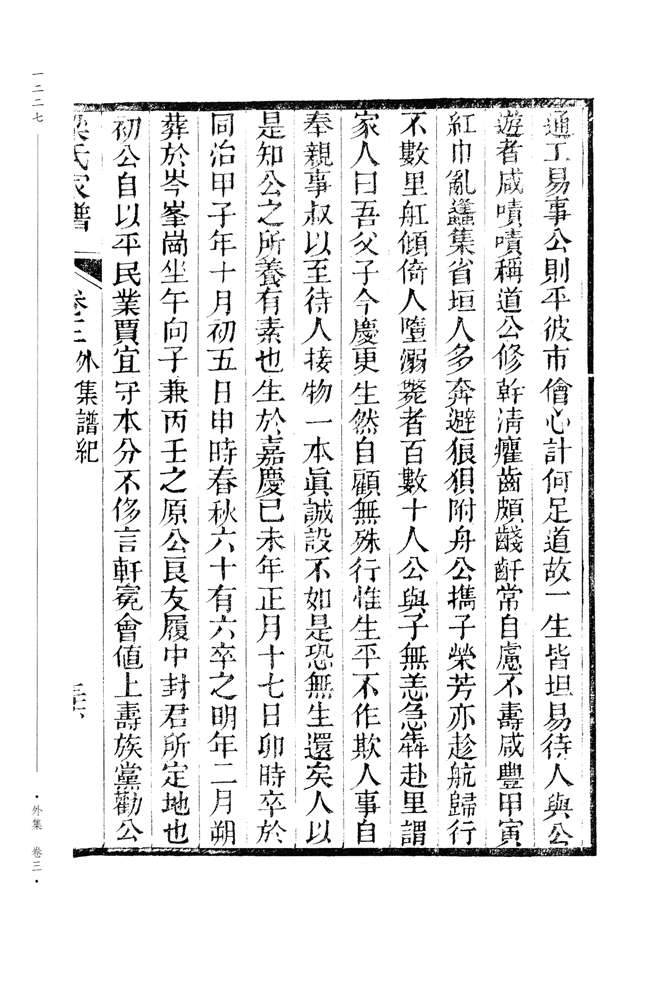 通工易事公則平彼市儈心計何足道故一生皆坦易待人與公
遊者咸嘖嘖稱道公修幹清癯齒頗齾齖常自慮不壽咸豐甲寅
紅巾亂蠭集省垣人多奔避狼狽附舟公攜子榮芳亦趁航歸行
不數里舡傾倚人墮溺斃者百數十人公與子無恙急犇赴里謂
家人曰吾父子今慶更生然自顧無殊行惟生平不作欺人事自
奉親事叔以至待人接物一本眞誠設不如是恐無生還矣人以
是知公之所養有素也生於嘉慶己未年正月十七日卯時卒於
同治甲子年十月初五日申時春秋六十有六卒之明年二月朔
葬於岑峯崗坐午向子兼丙壬之原公良友履中封君所定地也
初公自以平民業賈宜守本分不侈言軒冕會値上壽族黨勸公
梁氏家譜 卷三外集譜紀
一二二七
・外集 卷三・